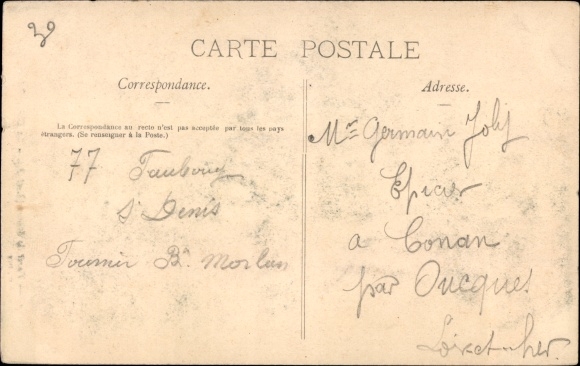 CARTE POSTALE
Correspondance.
La Correspondance au recto n'est pas acceptée par tous les pays
étrangers. (Se renseigner à la Poste.)
77 Faubourg
St Denis
Tournir Bn Morlan
Adresse.
Mr Germain Joly
Epicier
a Conan
par Oucques
Loir et-cher.